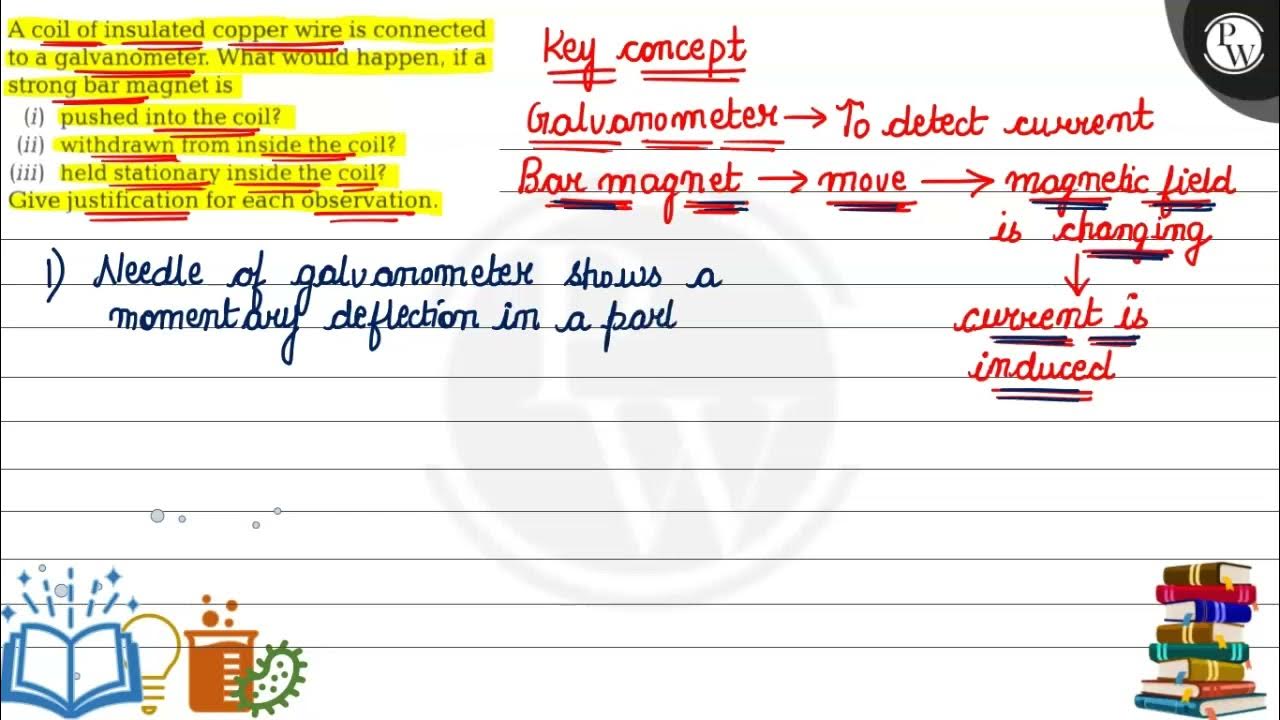 A coil of insulated copper wire is connected
to a galvanometer. What would happen, if a
strong bar magnet is
(i) pushed into the coil?
(ii) withdrawn from inside the coil?
(iii) held stationary inside the coil?
Give justification for each observation.
Key concept
Galvanometer → To detect current
Bar magnet → move → magnetic field
is changing
↓
current is
induced
1) Needle of galvanometer shows a
momentary deflection in a part
PW
PW